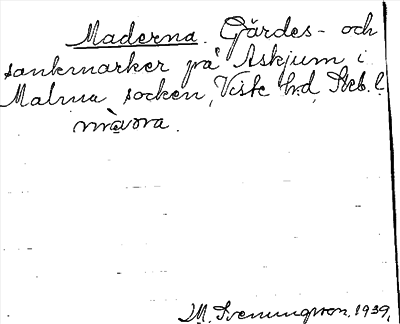 Maderna. Gärdes- och
sankmarker på Askjum i
Malma socken, Viste hd, Skab. l.
màɷna.
M. Svenungsson, 1939.